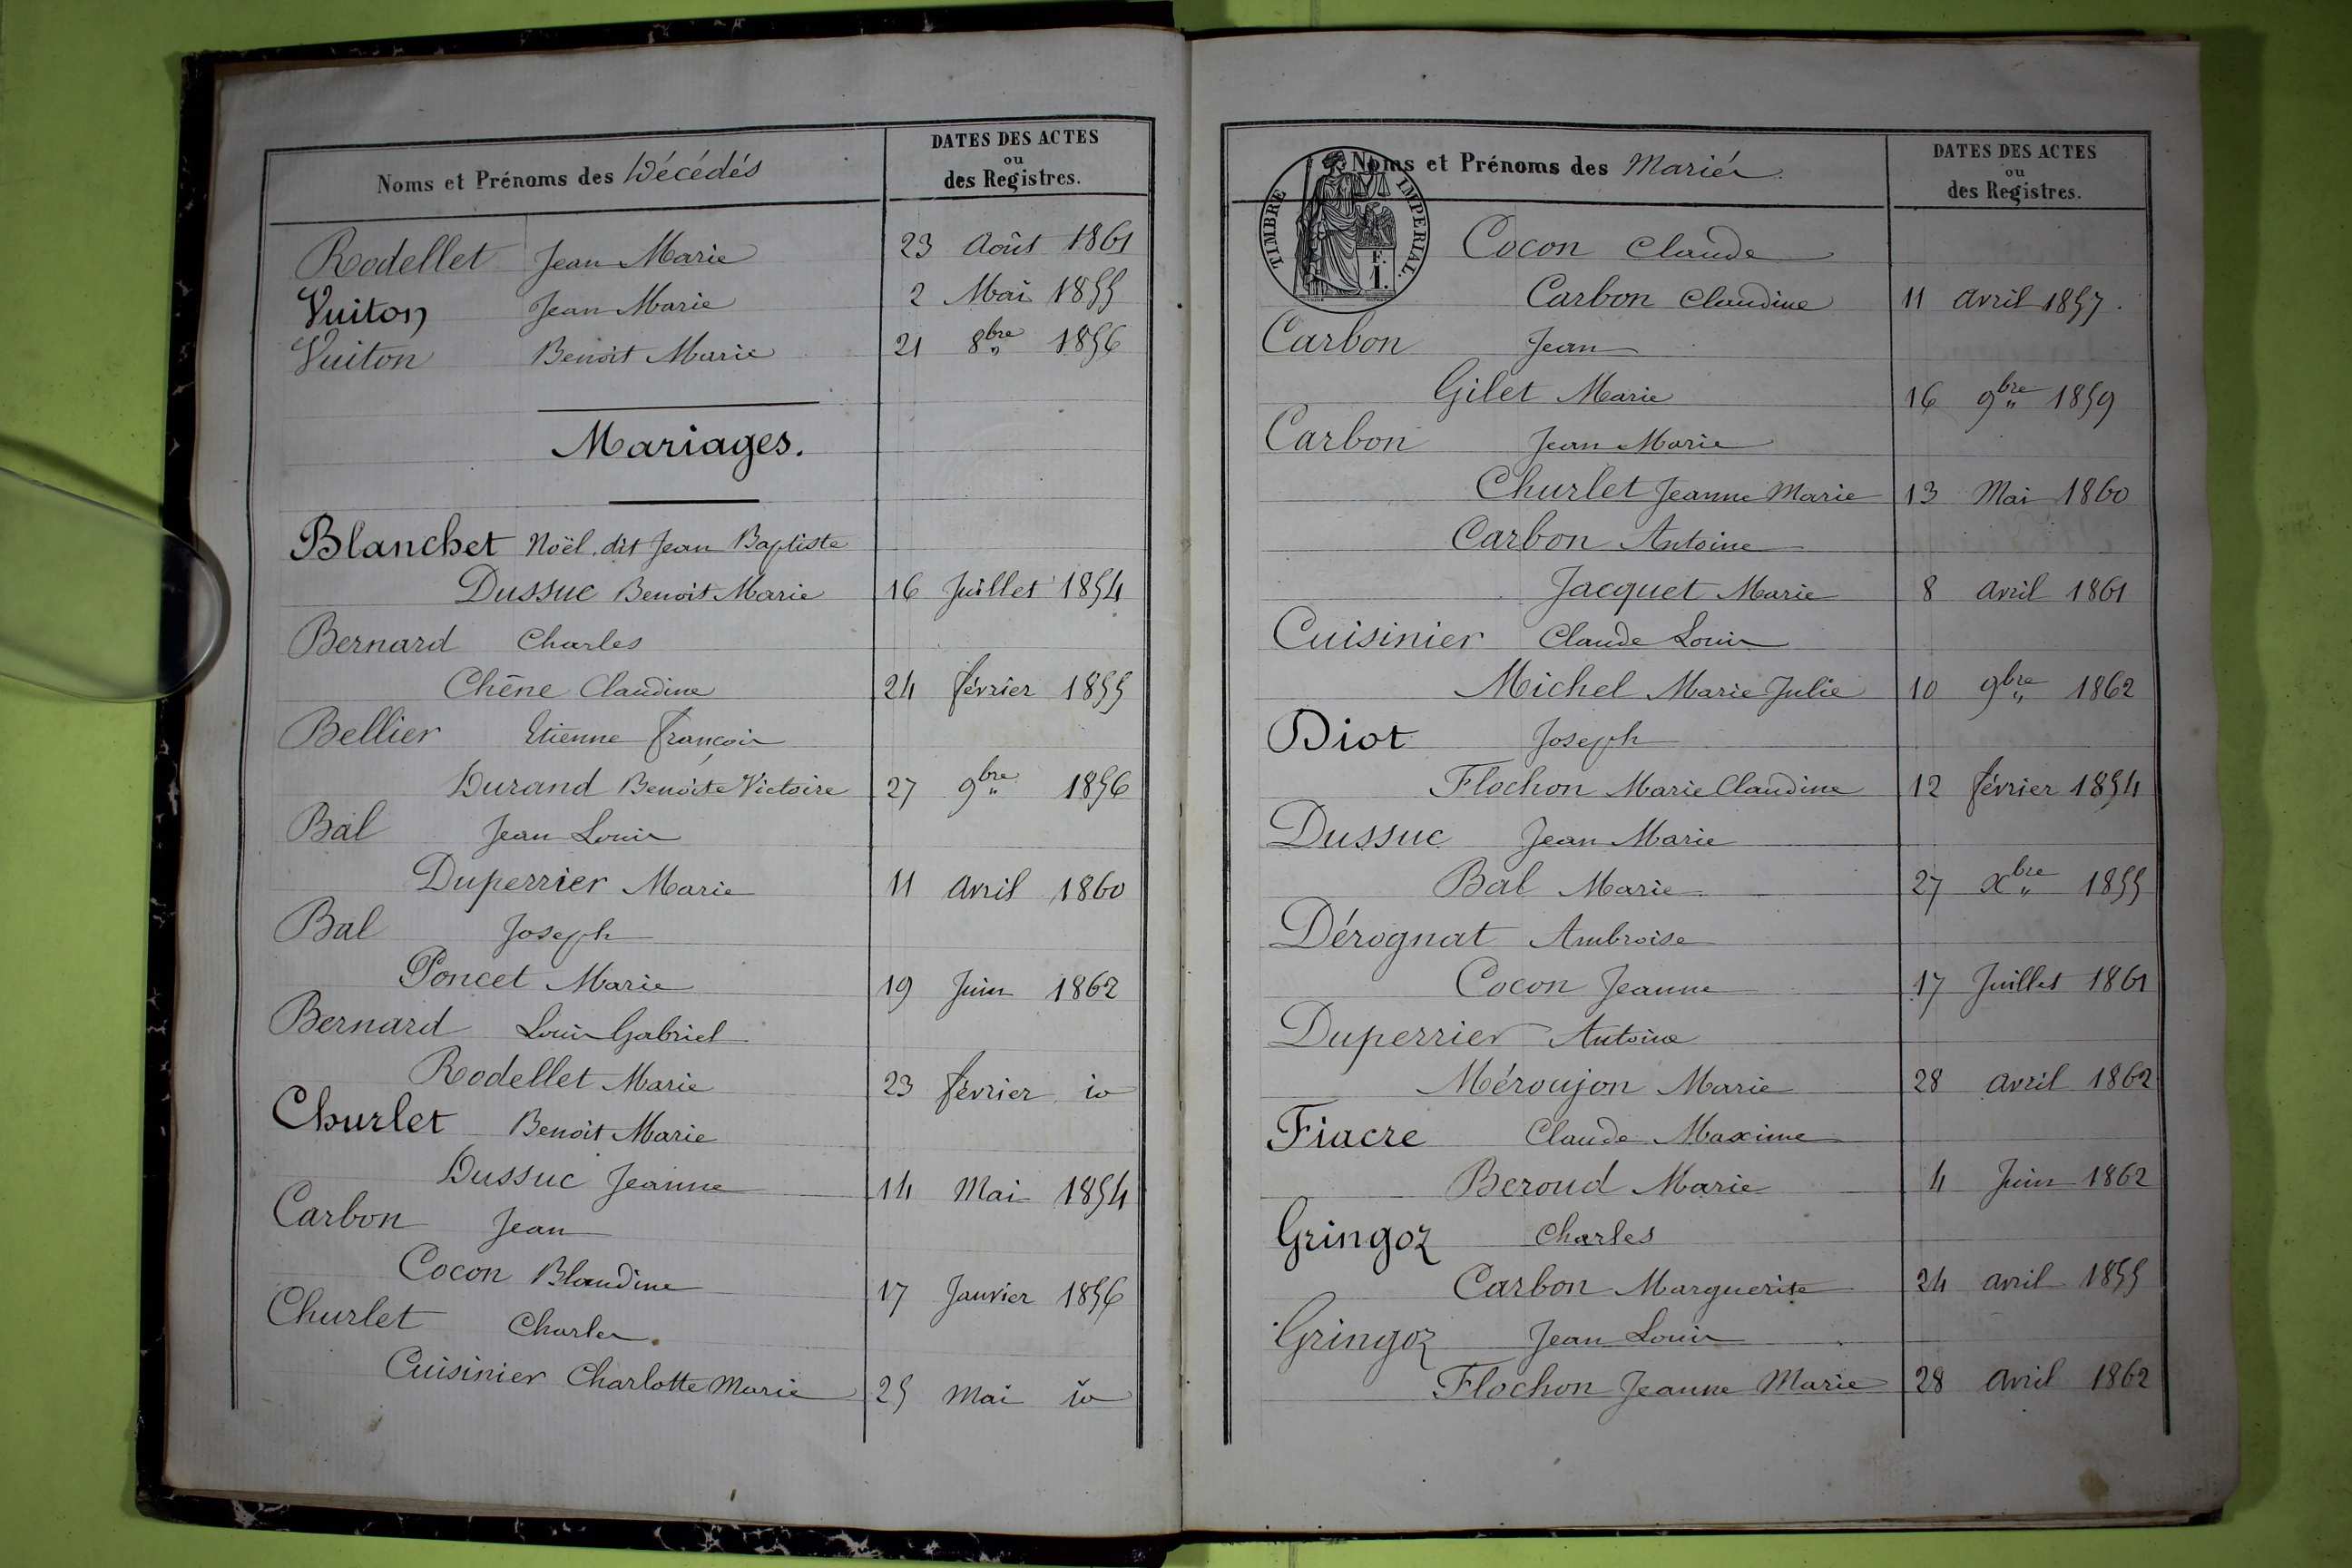 Noms et Prénoms des Décédés
DATES DES ACTES
ou
des Registres.
Rodellet Jean Marie 23 Août 1861
Vuiton Jean Marie 2 Mai 1855
Vuiton Benoit Marie 21 8bre 1856
Mariages.
Blanchet Noël dit Jean Baptiste
Dussuc Benoit Marie 16 Juillet 1854
Bernard Charles
Chêne Claudine 24 février 1855
Bellier Etienne françois
Durand Benoite Victoire 27 9bre 1856
Bal Jean Louis
Duperrier Marie 11 avril 1860
Bal Joseph
Poncet Marie 19 Juin 1862
Bernard Louis Gabriel
Rodellet Marie 23 février io
Churlet Benoit Marie
Dussuc Jeanne 14 Mai 1854
Carbon Jean
Cocon Blandine 17 Janvier 1856
Churlet Charles
Cuisinier Charlotte Marie 25 Mai io
Noms et Prénoms des Mariés
DATES DES ACTES
ou
des Registres.
TIMBRE IMPERIAL.
F.
1.
Cocon Claude
Carbon Claudine 11 avril 1857.
Carbon Jean
Gilet Marie 16 9bre 1859
Carbon Jean Marie
Churlet Jeanne Marie 13 Mai 1860
Carbon Antoine
Jacquet Marie 8 avril 1861
Cuisinier Claude Louis
Michel Marie Julie 10 9bre 1862
Diot Joseph
Flochon Marie Claudine 12 février 1854
Dussuc Jean Marie
Bal Marie 27 xbre 1855
Dérognat Ambroise
Cocon Jeanne 17 Juillet 1861
Duperrier Antoine
Méroujon Marie 28 avril 1862
Fiacre Claude Maxime
Beroud Marie 4 Juin 1862
Gringoz Charles
Carbon Marguerite 24 avril 1855
Gringoz Jean Louis
Flochon Jeanne Marie 28 avril 1862